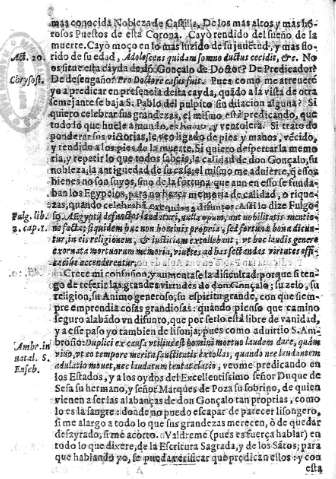 mas conocida Nobleza de Castilla, De los mas altos, y mas ho-
rosos Puestos de esta Corona. Cayò rendido del sueño de la
muerte. Cayò moço en lo mas lucido de su juventud, y mas flo-
Act. 20. rido de su edad, Adolescens quidam somno ductus cecidit, &c. No
os situe esta cayda desde Gonçalo de Doctor? De Predicador?
Chrysost. De desengaño? Pro Doctore casus fuit. Pues como me atreverè
yo a predicar en presencia desta cayda, quãdo a la vista de otra
semejante se baja S. Pablo del pulpito sin dilacion alguna? Si
quiero celebrar sus grandezas, el mismo està predicando, que
todo lo que huele a mundo, es humo, y vanidad. Si trato de
ponderar sus victorias, le veo ligado de pies y manos, vecido,
y rendido a los pies de la muerte. Si quiero despertar la memo-
ria, y repetir lo que todos sabeis, la calidad de don Gonçalo, su
nobleza, la antiguedad de su casa, el mismo me advierte, q essos
bienes no son suyos, sino de la fortuna que aun en esso se funda-
ban los Egypcios, para no hazer memoria de calidad, o rique-
zas, quando celebraban a sus difuntos. Assi lo dize Fulgo-
Fulg. lib. so. Aegypti defunctos laudaturi, nulla opum, aut nobilitatis mentio-
2. cap. 1. ne facta; siquidem hac non hominis propria, sed fortuna bona dicun-
tur, in eis religionem, & iustitiam extollebant, vt hoc laudis genere
exornata mortuorum memoria, viuentes ad has sectandas virtutes effi-
accende accenderentur.
Crece mi confusion, y aumentase la dificultad porque si ten-
go de referir las grandes virtudes de don Gonçalo; su zelo, su
religion, su Animo generoso, su espiritu grande, con que siem-
pre emprendia cosas grandiosas: quando pienso que camino
seguro alabando vn difunto, que por sello està libre de vanidad,
y a ese paso yo tambien de lisonja; pues como aduirtio S. Am-
Ambr. in brosio: Duplici ex causa vtilius est hominis mortui laudem dare, quàm
natal. S. viuo, vt eo tempore merita sanctitatis extollas, quando nec laudantem
Euseb. adulatio mouet, nec laudatum tentat elatio, veome predicando en
los Estados, y a los oydos del Excelentissimo señor Duque de
Sesa su hermano, y señor Marques de Poza su sobrino, de quien
vienen a ser las alabanças de don Gonçalo tan proprias, como
lo es la sangre: donde no puedo escapar de parecer lisongero,
si me alargo a todo lo que sus grandezas merecen, ò de quedar
desayrado, si me acorto. Valdreme (pues es fuerça hablar) en
todo lo que dixere, de la Escritura Sagrada, y de los Sãtos; para
que hablando yo, se pueda verificar que predican ellos: y con
esta